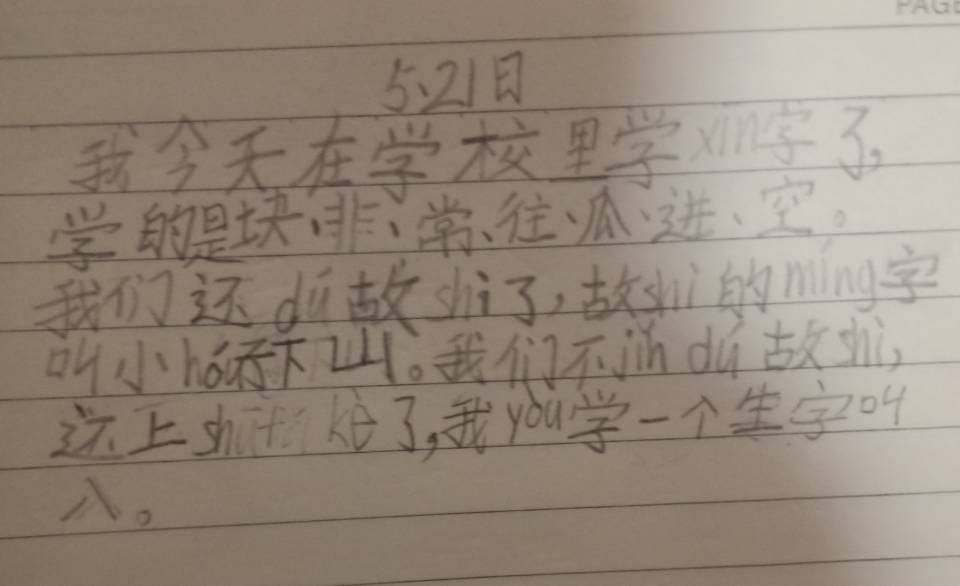 PAGE
5.21日
我今天在学校里学xīn字了,
学的是块、非、常、往、瓜、进、空。
我们还dú故shi了,故shi的míng字
叫小hóu下山。我们不jǐn dú故shi,
还上 kè了,我yòu学一个生字叫
入。